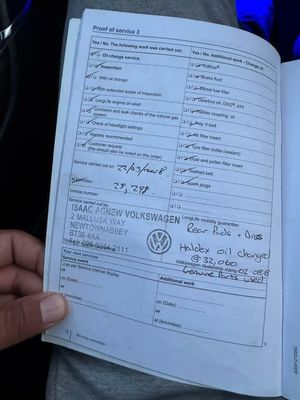 Proof of service 3
Yes / No. The following work was carried out:
Oil change service
Inspection
With oil change
With extended scope of inspection
LongLife engine oil used
Corrosion and leak checks of the natural gas system
Check of headlight settings
Repairs recommended
Customer request
(this should also be noted on the order)
Service carried out on:
at km/miles:
25,298
Invoice number
Service carried out by:
ISAAC AGNEW VOLKSWAGEN
2 MALLUSK WAY
NEWTOWNABBEY
BT36 4AA
Your next services
Service event
as per Service interval display
on (Date)
at (km/miles):
Yes / No. Additional work - Change of:
Brake fluid
Diesel fuel filter
Haldex coupling oil
Poly V-belt
Air filter insert
Tyre filler bottle (sealant)
Dust and pollen filter insert
Toothed belt
Spark plugs
LongLife mobility guarantee:
Rear Pads + Discs
Haldex oil changed
@ 32,060
Volkswagen dealership stamp
Genuine Parts used
Additional work
on (Date)
at (km/miles):